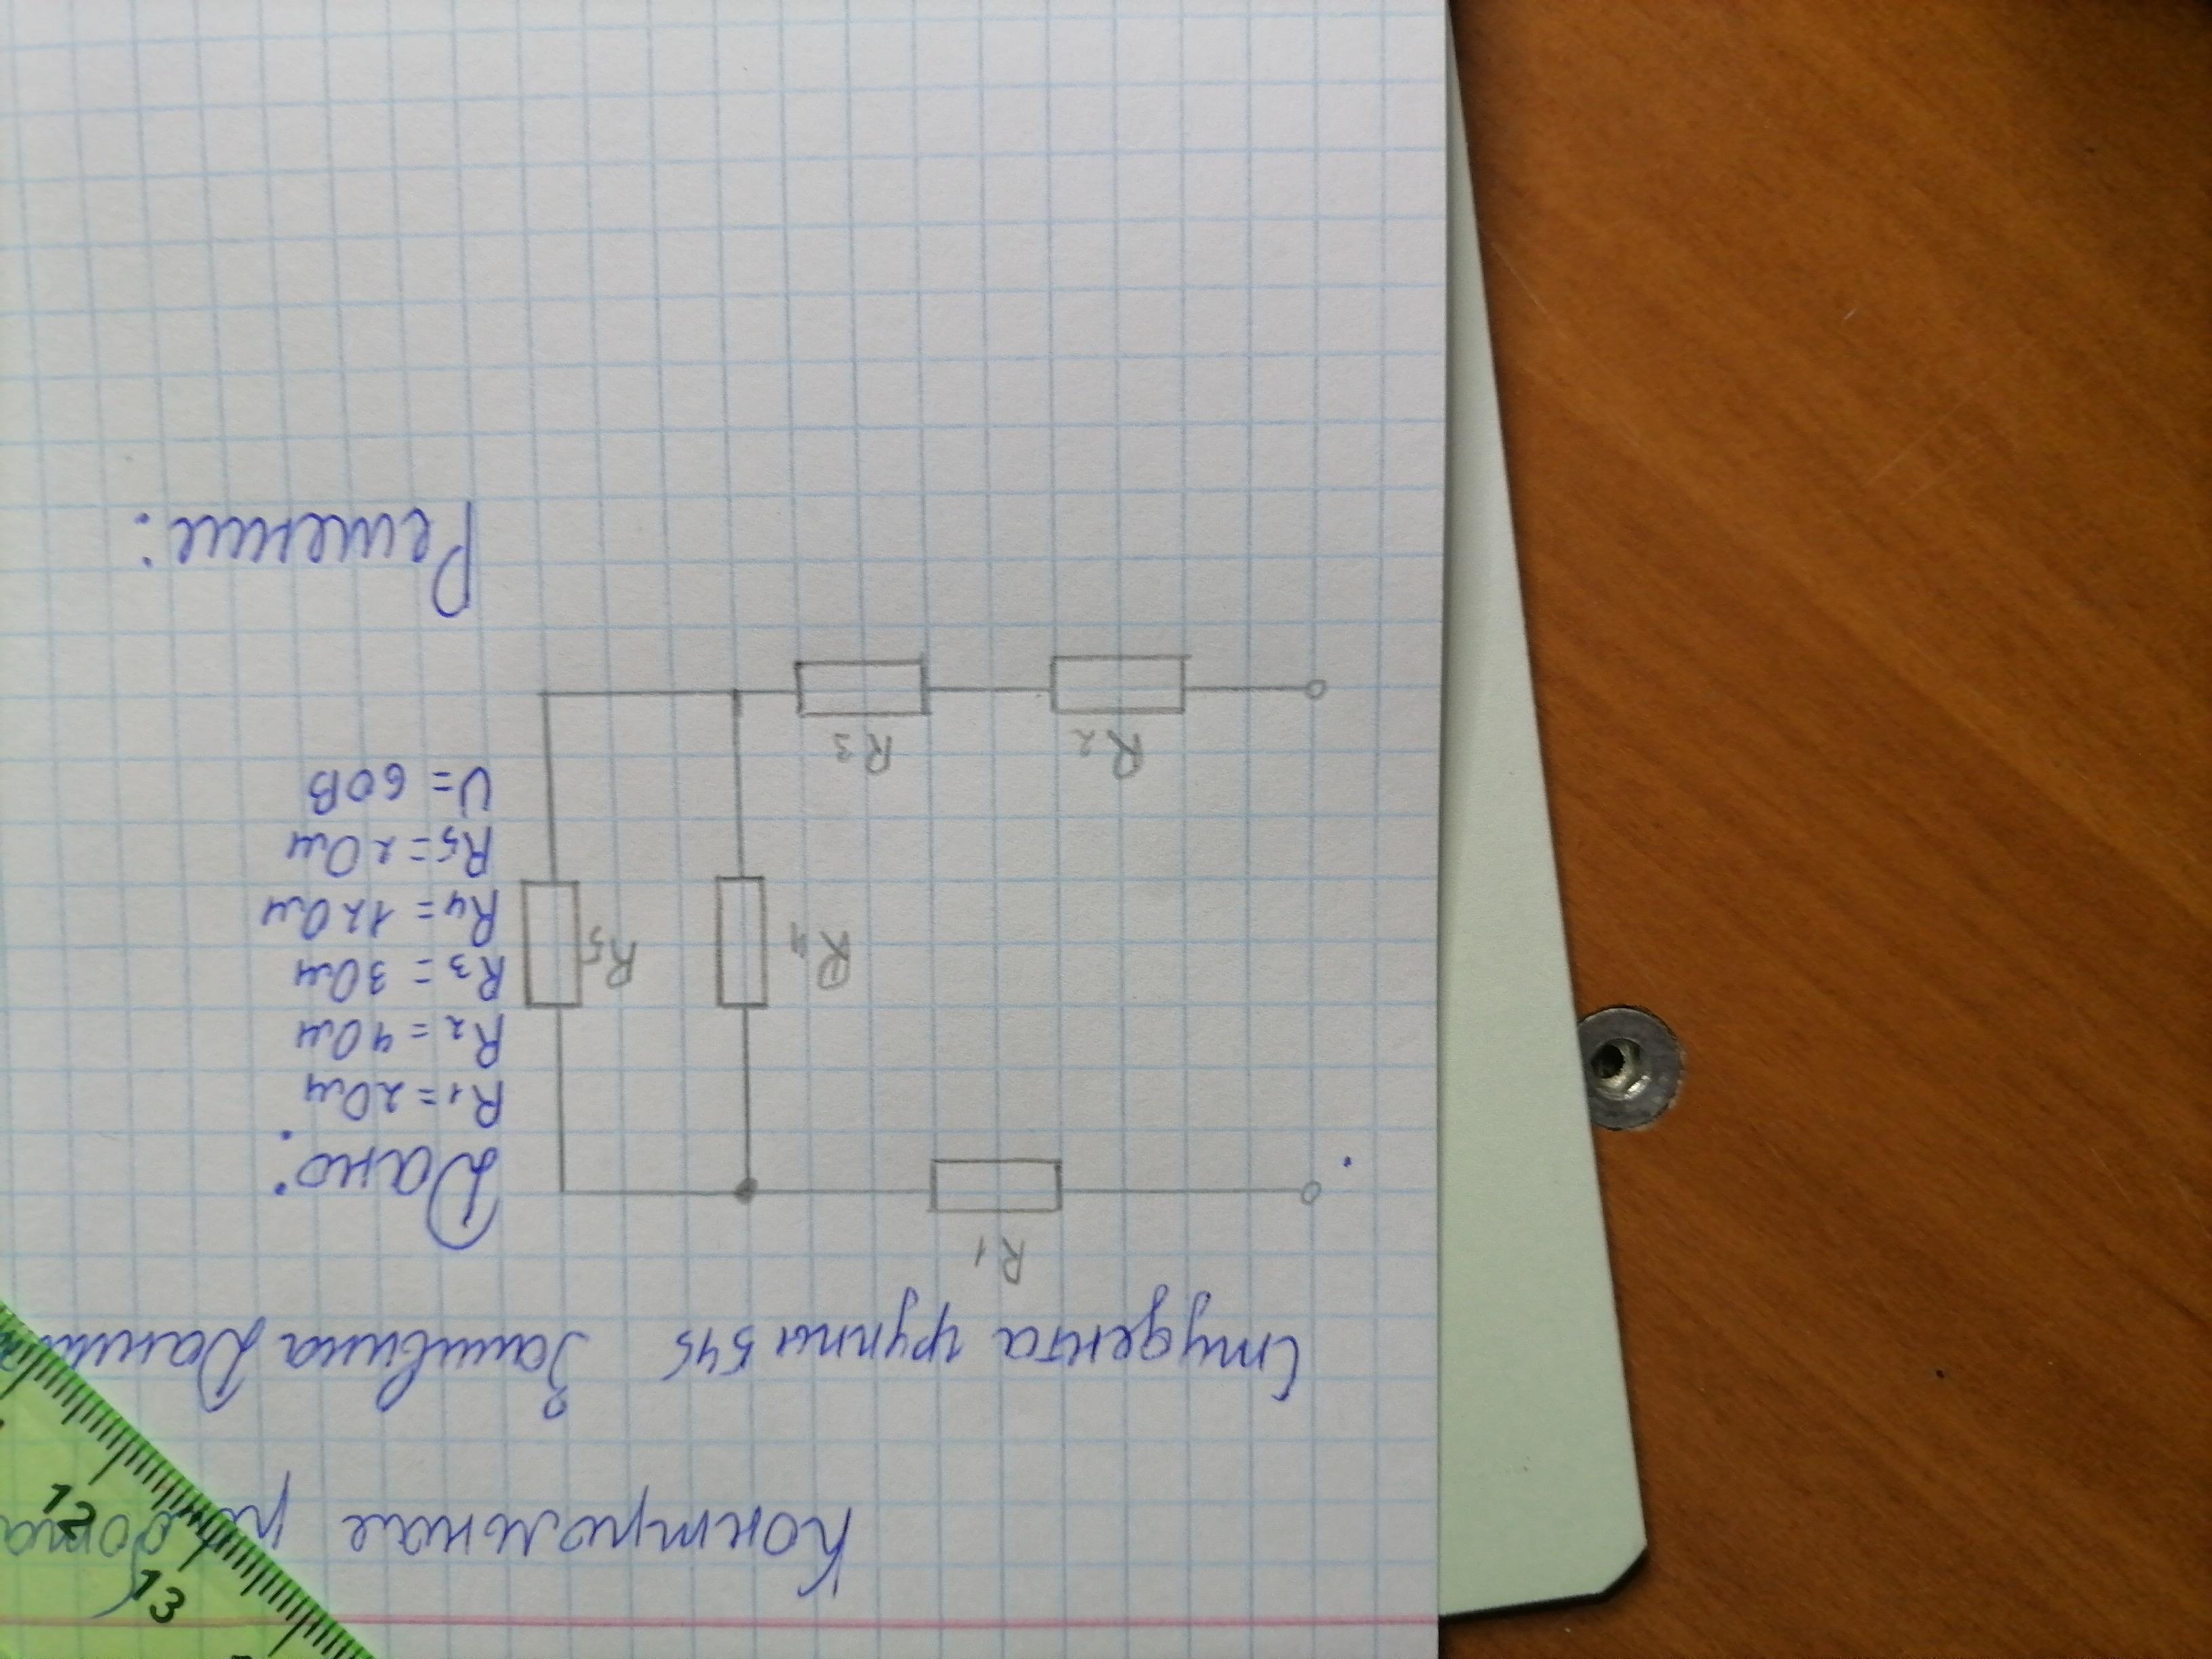 Контрольная работа
Студента группы 545
R1
Дано:
R1=2Ом
R2=4Ом
R3=3Ом
R4=12Ом
R5=2Ом
U=60В
R4
R5
R2
R3
Решение:
12
13